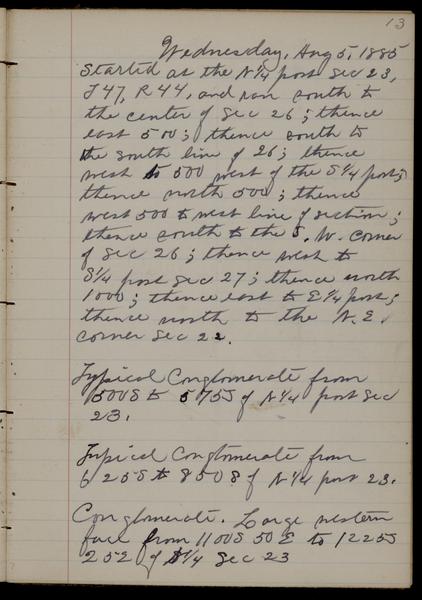 13
Wednesday, Aug 5, 1885
Started at the N¼ post Sec 23,
T47, R44, and ran south to
the center of Sec 26; thence
east 500; thence south to
the south line of 26; thence
west to 500 west of the S¼ post;
thence north 500; thence
west 500 to west line of section;
thence south to the S. W. Corner
of Sec 26; thence west to
S¼ post Sec 27; thence north
1000; thence east to E¼ post;
thence north to the N.E.
corner Sec 22.
Typical Conglomerate from
500S to 575S of N¼ post Sec
23.
Typical Conglomerate from
625S to 850S of N¼ post 23.
Conglomerate. Large western
face from 1100S 50E to 1225S
25E of N¼ Sec 23